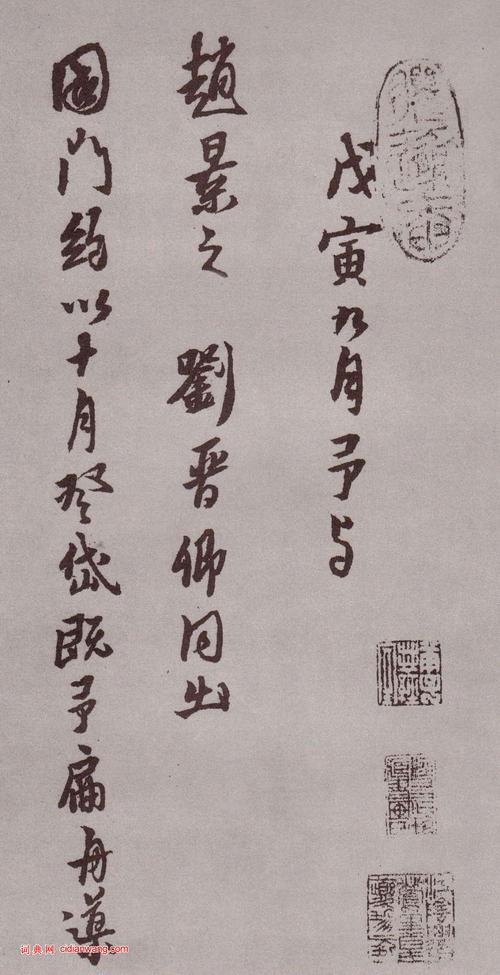 戊寅九月予与
趙景之 劉晉卿同出
國門約以十月登岱既予扁舟導
词典网 cidianwang.com